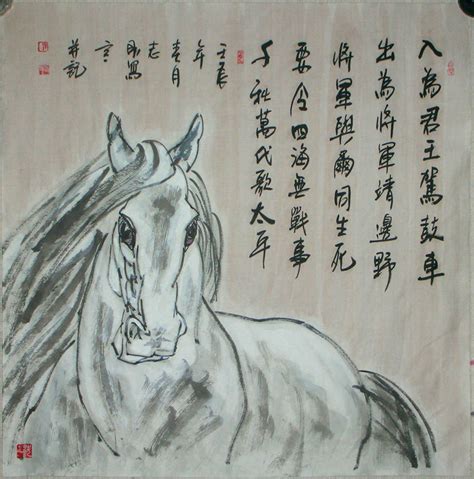 入為君王駕鼓車
出為將軍靖邊野
將軍與爾同生死
要令四海無戰事
千秋萬代歌太平
壬辰
年
月
志
寫
并記